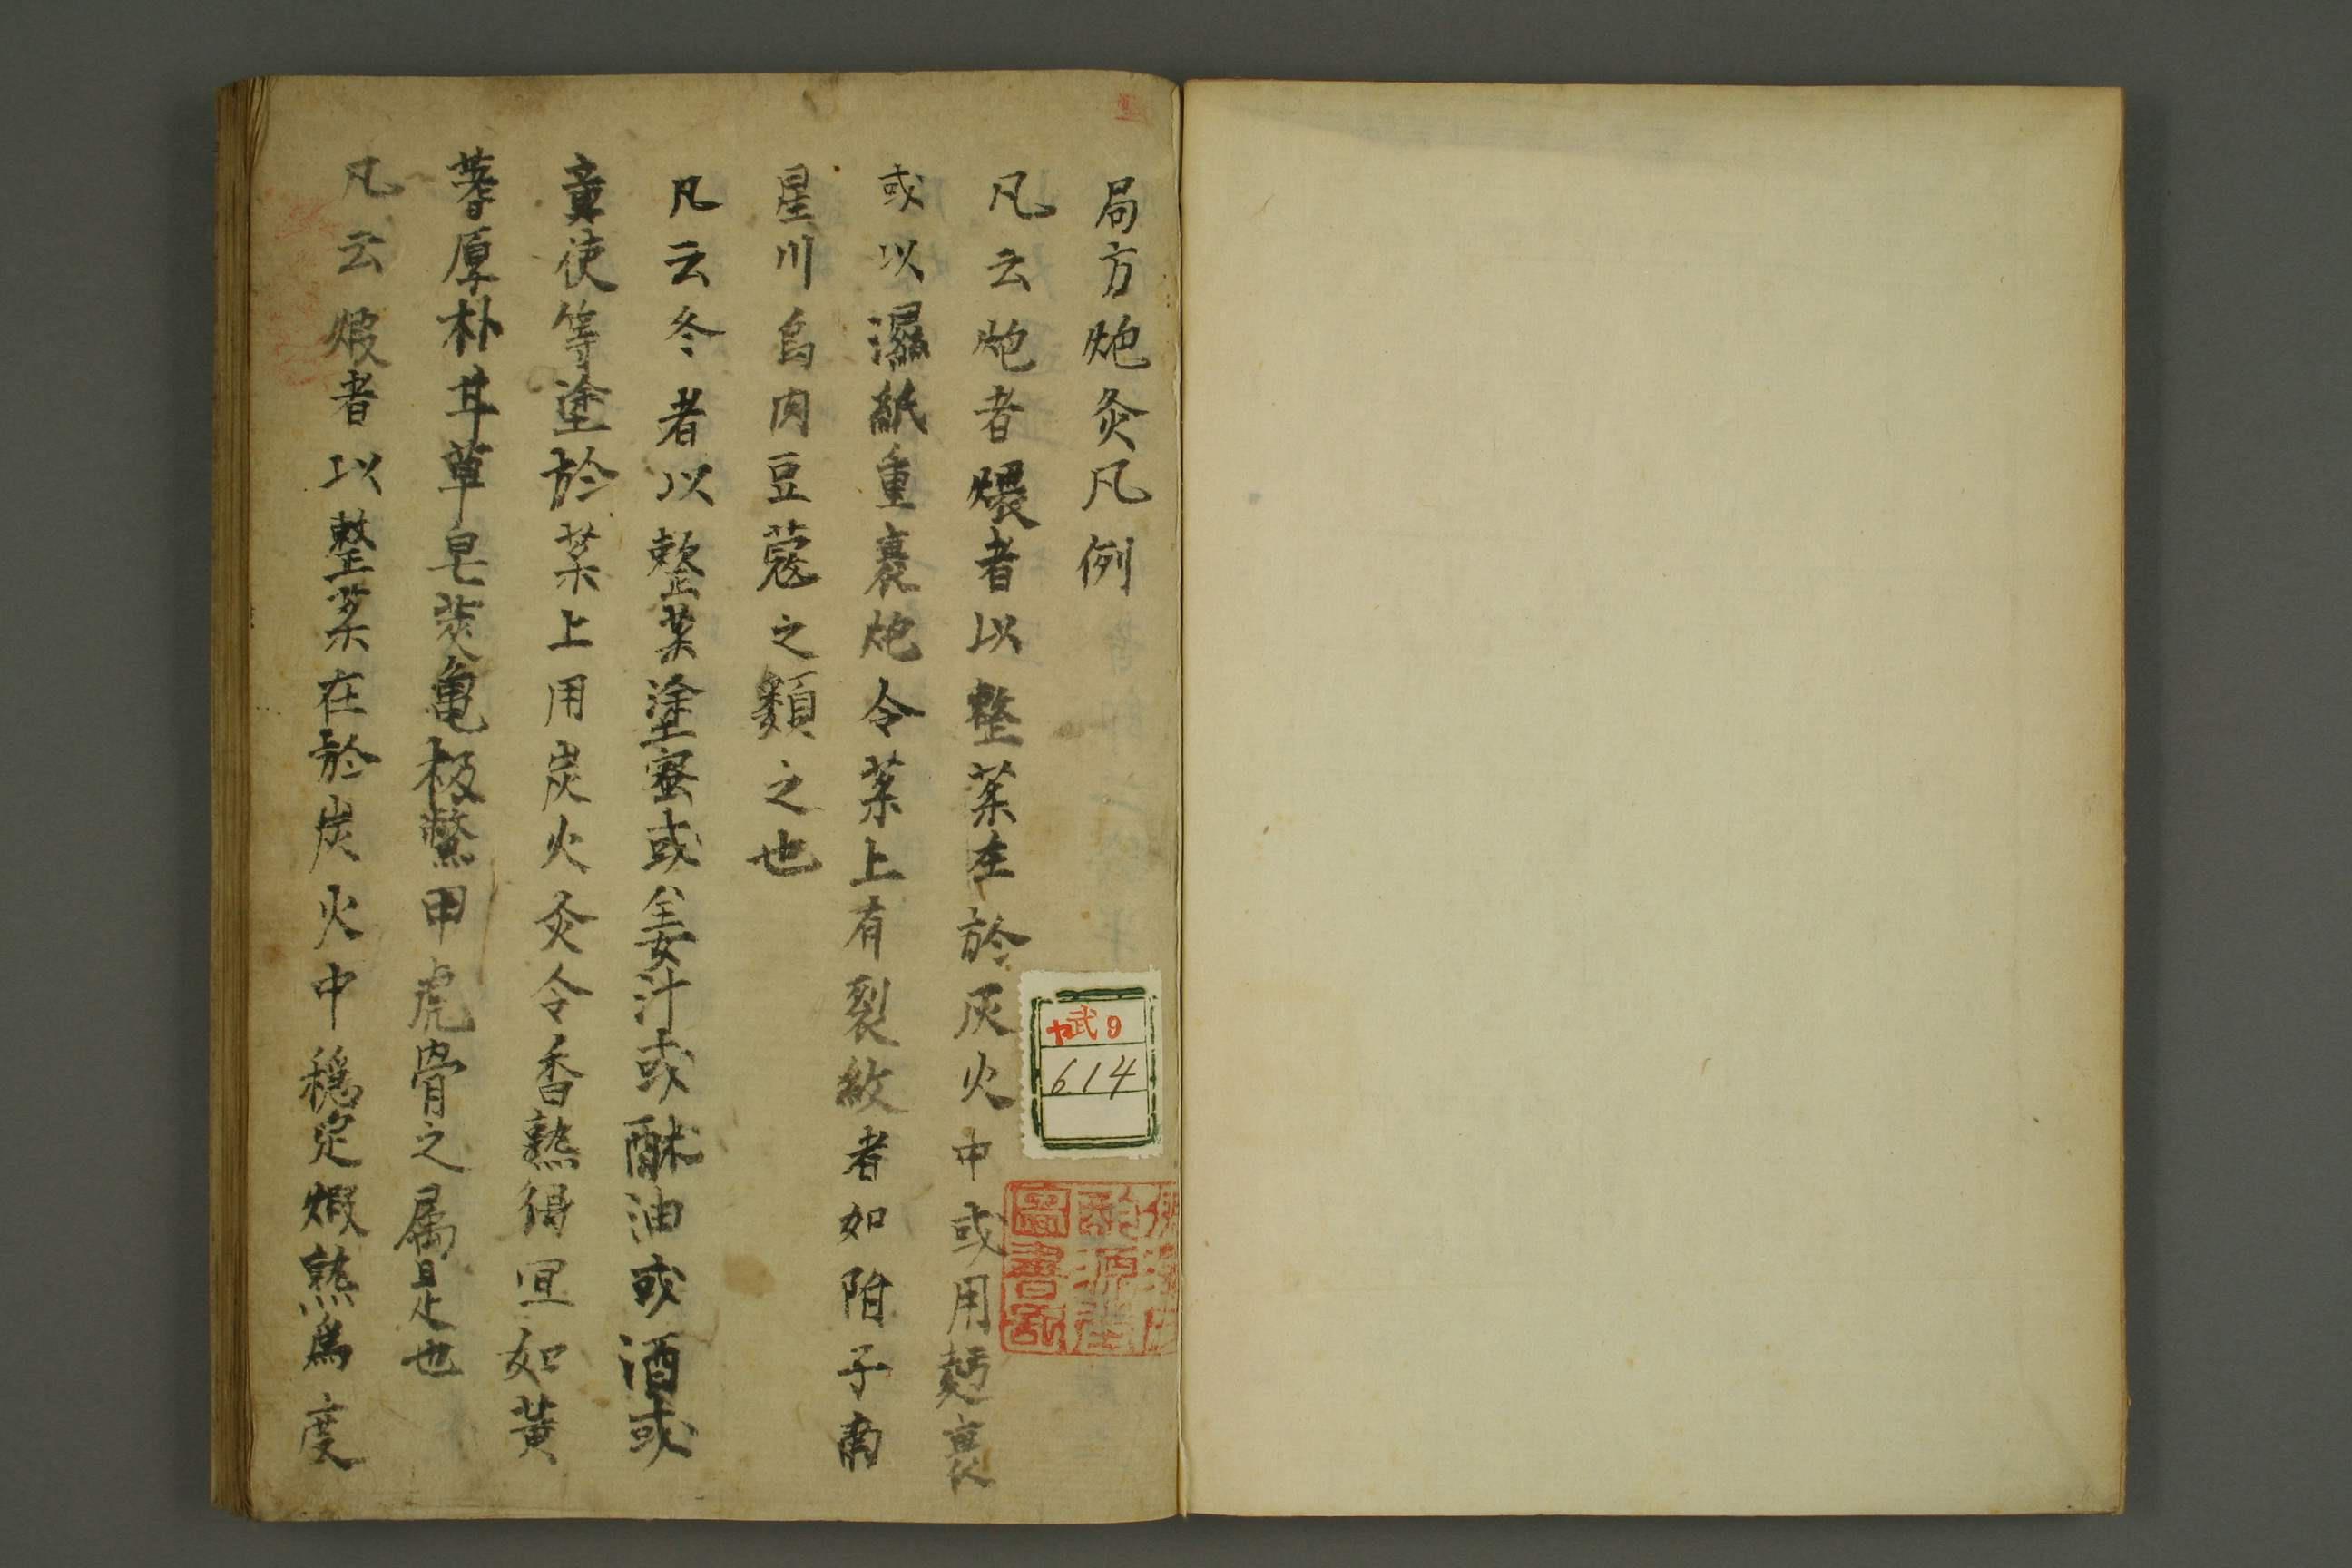 局方炮灸凡例
凡云炮者煨者以整薬在於灰火中或用麪裹
或以濕紙重裹炮令薬上有裂紋者如附子南
星川烏肉豆蔻之類之也
凡云灸者以整薬塗蜜或姜汁或酥油或酒或
童使等塗於薬上用炭火灸令香熟得宜如黄
蓍厚朴甘草皂莢亀板鱉甲虎骨之属是也
凡云煅者以整薬在於炭火中穏定煅熟為度
武9
614
圖書記